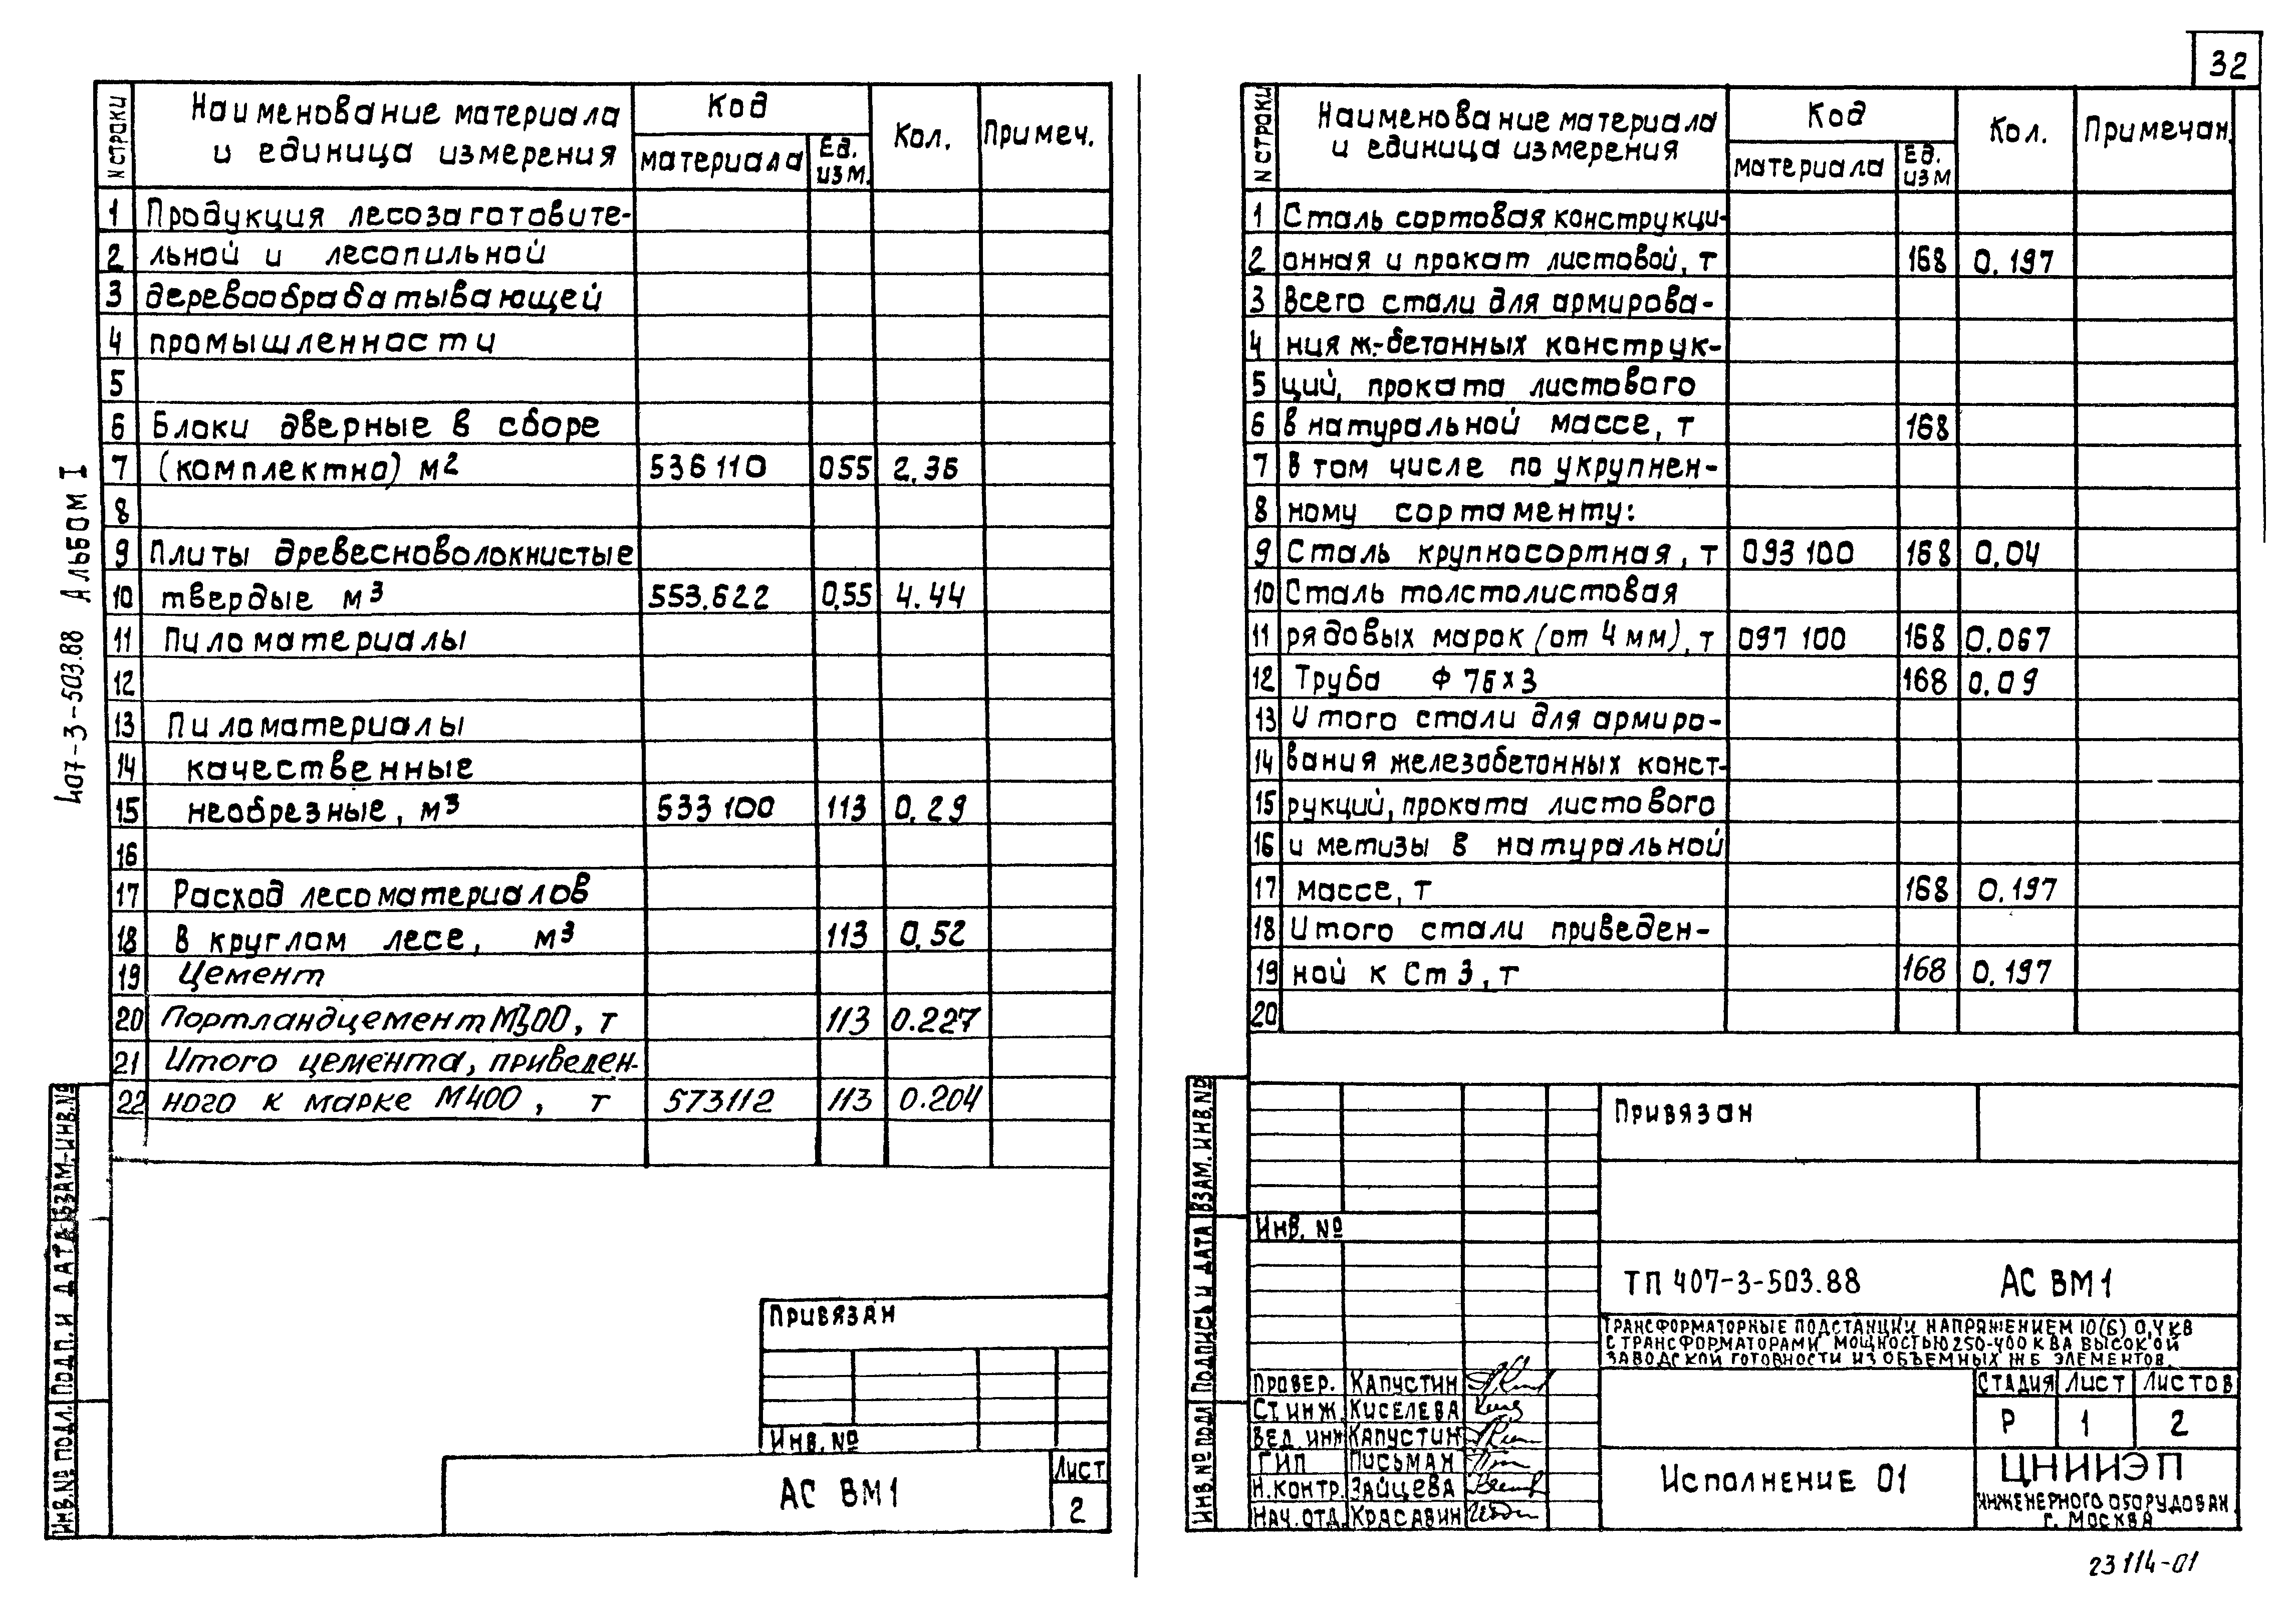 32
407-3-503.88 Альбом I
N строки
Наименование материала
и единица измерения
Код
материала
Ед.
изм.
Кол.
Примеч.
1 Продукция лесозаготовите-
2 льной и лесопильной
3 деревообрабатывающей
4 промышленности
5
6 Блоки дверные в сборе
7 (комплектно) м2 536 110 055 2.36
8
9 Плиты древесноволокнистые
10 твердые м3 553.622 0,55 4.44
11 Пиломатериалы
12
13 Пиломатериалы
14 качественные
15 необрезные, м3 533 100 113 0,29
16
17 Расход лесоматериалов
18 в круглом лесе, м3 113 0,52
19 Цемент
20 Портландцемент М300, т 113 0.227
21 Итого цемента, приведен-
22 ного к марке М400, т 573112 113 0.204
Привязан
Инв. №
АС ВМ1
Лист
2
Инв.№ подл.
Подп. и дата
Взам-инв.№
N строки
Наименование материала
и единица измерения
Код
материала
Ед.
изм
Кол.
Примечан.
1 Сталь сортовая конструкци-
2 онная и прокат листовой, т 168 0.197
3 Всего стали для армирова-
4 ния ж.-бетонных конструк-
5 ций, проката листового
6 в натуральной массе, т 168
7 В том числе по укрупнен-
8 ному сортаменту:
9 Сталь крупносортная, т 093 100 168 0,04
10 Сталь толстолистовая
11 рядовых марок (от 4 мм), т 097 100 168 0.067
12 Труба Ф 76x3 168 0.09
13 Итого стали для армиро-
14 вания железобетонных конст-
15 рукций, проката листового
16 и метизы в натуральной
17 массе, т 168 0.197
18 Итого стали приведен-
19 ной к Ст 3, т 168 0.197
20
Привязан
Инв. №
ТП 407-3-503.88 АС ВМ1
Трансформаторные подстанции напряжением 10(6) 0,4 кВ
с трансформаторами мощностью 250-400 кВА высокой
заводской готовности из объемных ЖБ элементов.
Провер. Капустин
Ст. инж. Киселева
Вед. инж Капустин
ГИП Письман
Н.контр. Зайцева
Нач.отд. Красавин
Исполнение 01
Стадия Лист Листов
Р 1 2
ЦНИИЭП
инженерного оборудован.
г. Москва
Инв.№ подл
Подпись и дата
Взам. инв.№
23114-01